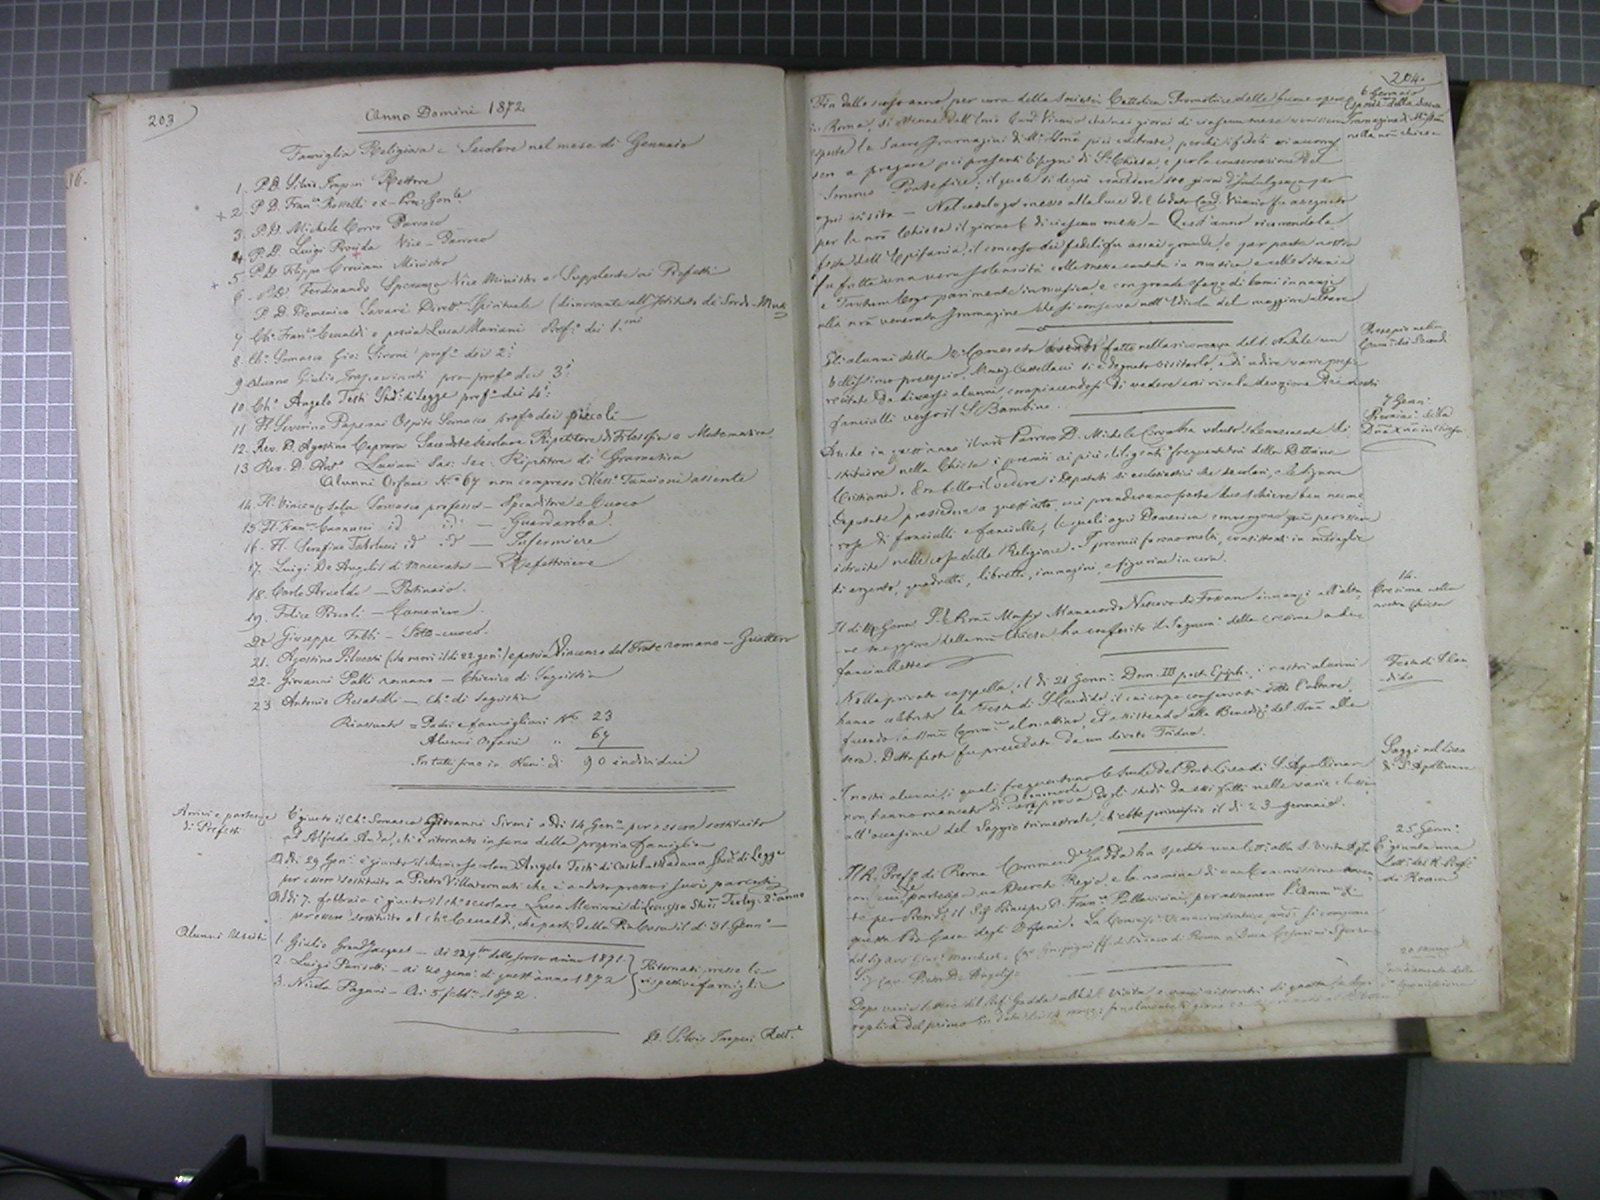 203
Anno Domini 1872
Famiglia Religiosa e Secolare nel mese di Gennaio
1. P. D. Silvio Imperi Rettore
+ 2. P. D. Fran.co Rosselli ex-Proc. Gen.le
3. P. D. Michele Corvo Parroco
4. P. D. Luigi Procida Vice-Parroco
+ 5. P. D. Filippo Crociani Ministro
6. P. D. Ferdinando Speranza Vice Ministro e Supplente ai Prefetti
P. D. Domenico Savarè Dirett.e Spirituale (dimorante all'Istituto de' Sordo-Muti)
7 Ch.o Fran.co Cevaldi e poscia Luca Mariani Pref.o dei 1.mi
8. Ch.o Somasco Giov. Sironi pref.o dei 2.i
9 Alunno Giulio pro pref.o dei 3.i
10. Ch.o Angelo Testi Stud. di Legge pref.o dei 4.i
11 Fr. Severino Paperini Ospite Somasco prefo dei piccoli
12. Rev. D. Agostino Caprara Sacerdote Secolare Ripetitore di Filosofia e Matematica
13 Rev. D. Ant.o Luciani Sac. Sec. Ripetitore di Gramatica
Alunni Orfani N.o 67 non compreso Aless.o Tancioni assente
14. Fr. Vincenzo Sala Somasco professo - Spenditore e Cuoco
15. Fr. Fran.co id id - Guardaroba
16. Fr. Serafino id id - Infermiere
17. Luigi De Angelis di Macerata - Refettoriere
18. Carlo Arnoldo - Portinaio.
19. Felice - Cameriere.
20 Giuseppe Fabbi - Sotto-cuoco.
21. Agostino Silvestri (che morì il dì 22 gen.o) e poscia Vincenzo del Frate romano - Guattero
22. Giovanni Galli romano - Chierico di Sagristia
23 Antonio Rosatelli - Ch.o di Sagristia
Riassunto = Padri e famigliari N.o 23
Alunni Orfani " 67
In tutti sono in Num.o di 90 individui
Arrivi e partenze
di Prefetti
È giunto il Ch.o Somasco Giovanni Sironi a dì 14 Gen.o per essere sostituito
ad Alfredo che è ritornato in seno della propria famiglia
A dì 29 Gen.o è giunto il chierico secolare Angelo Testi di Castel Madama Stud. di Legge
per esser sostituito a Pietro Villaternati che è andato presso i suoi parenti
A dì 7. febbraio è giunto il ch.o secolare Luca Mariani di Stud. Teolog. 2.o anno
per esser sostituito al ch.o Cevaldi, che partì dalla Pia Casa il dì 31 Genn.o
Alunni Usciti
1. Giulio Grandjacquet - ai dello scorso anno 1871.
2. Luigi Parisotti - ai 20 genn. di quest'anno 1872
3. Nicola Pagani - ai 5 febb.o 1872.
Ritornati presso le
rispettive famiglie
D. Silvio Imperi Rett.e
204.
6 Gennaio
Esposiz. della Sacra
Immagine di M.
nella nra chiesa
Fin dallo scorso anno per cura della Società Cattolica Promotrice delle buone opere
in Roma, si ottenne dall'Emo Card. Vicario che nei giorni di ciascun mese venissero
esposte le Sacre Immagini di M. più venerate, perchè i fedeli vi accorressero
a pregare pei presenti bisogni di S. Chiesa, e per la conservazione del
Sommo Pontefice, il quale si degnò concedere 300 giorni d'Indulgenza per
ogni visita - Nel catalogo messo alla luce dal lodato Card. Vicario fu assegnato
per la nra Chiesa il giorno 6 di ciascun mese - Quest'anno ricorrendo la
festa dell'Epifania, il concorso dei fedeli fu assai grande, e per parte nostra
fu fatta una vera solennità colla messa cantata in musica e colle Litanie
e Tantum ergo parimente in musica e con grande sfarzo di lumi innanzi
alla nra venerata Immagine che si conserva nell'Edicola del maggiore altare
Presepio nella
Cam. dei Secondi
Gli alunni della 2a Camerata fatto nella ricorrenza del S. Natale un
bellissimo presepio, Monsig. Castellacci si è degnato visitarlo, e di udire varie poesie
recitate da diversi alunni, compiacendosi di vedere così viva la devozione dei nostri
fanciulli verso il S. Bambino.
7 Genn.o
Premiaz. della
Dna Xna in chiesa
Anche in quest'anno il nro Parroco D. Michele Corvo ha voluto solennemente distribuire
nella Chiesa i premii ai più diligenti frequentatori della Dottrina
Cristiana. Era bello il vedere i Deputati sì ecclesiastici che secolari, e le Signore
Deputate presiedere a quest'atto, cui prendevano parte due schiere ben numerose
di fanciulli e fanciulle, le quali ogni Domenica convengono per essere
istruite nelle cose della Religione. I premii furono molti, consistenti in medaglie
di argento, quadretti, libretti, immagini, e figurine in cera.
14.
Cresima nella
nostra chiesa
Il dì 14 Genn.o Monsig. Manacorda Vescovo di Fossano innanzi all'altare
maggiore della nra Chiesa, ha conferito il Sagram. della cresima a due
fanciullette
Festa di S. Candido
Nella privata cappella, il dì 21 Genn.o Dom. III post Epiph., i nostri alunni
hanno celebrato la Festa di S. Candido, il cui corpo conservasi sotto l'altare,
facendo la Comun.e al mattino, ed assistendo alla Benediz.e del Sma alla
sera. Detta festa fu preceduta da un divoto Triduo.
Saggi nel Liceo
di S. Apollinare
I nostri alunni, i quali frequentano le Scuole del Pont. Liceo di S. Apollinare
non hanno mancato di dar prova degli studi da essi fatti nelle varie classi
all'occasione del Saggio trimestrale, che ebbe principio il dì 23 Gennaio.
25 Genn.o
È giunta una
Lett. del R. Pref.
di Roma
Il R. Pref.o di Roma Commend.e Gadda ha spedito una lett. alla S. Visita Aplca
con cui partecipa un Decreto Regio, e la nomina di una Commissione
te per Presid. il Sig. Principe D. Fran.co Pallavicini, per assumere l'Amm.ne di
questa Pia Casa degli Orfani. La Commiss. amministratrice si compone
del Sig. Avv. Giusep. Marchetti, Cav. ff. di Sindaco di Roma, Duca Sforza
Sig. Cav. Pietro De Angelis.
20 marzo
Dopo varie lettere del Pref. Gadda alla S. Visita, e varii riscontri di questa, e dopo
replica del primo in data dei 14 marzo; finalmente il giorno